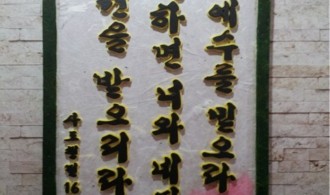 예수를 믿으라
하면 너와 네
을 받으리라
사도행전 16